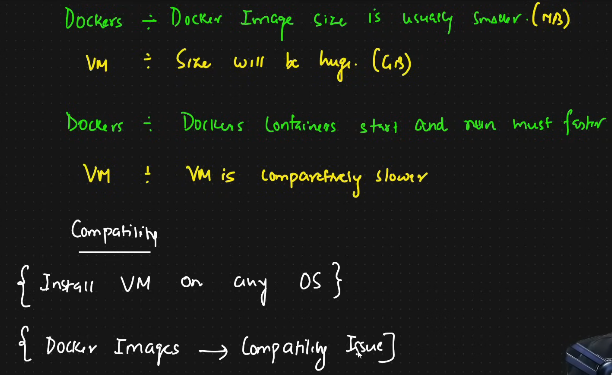 Dockers ÷ Docker Image size is usually smaller. (MB)
VM ÷ Size will be huge. (GB)
Dockers ÷ Dockers Containers start and run must faster
VM ÷ VM is comparetively slower
Compatility
{ Install VM on any OS }
{ Docker Images → Compatility Issue]